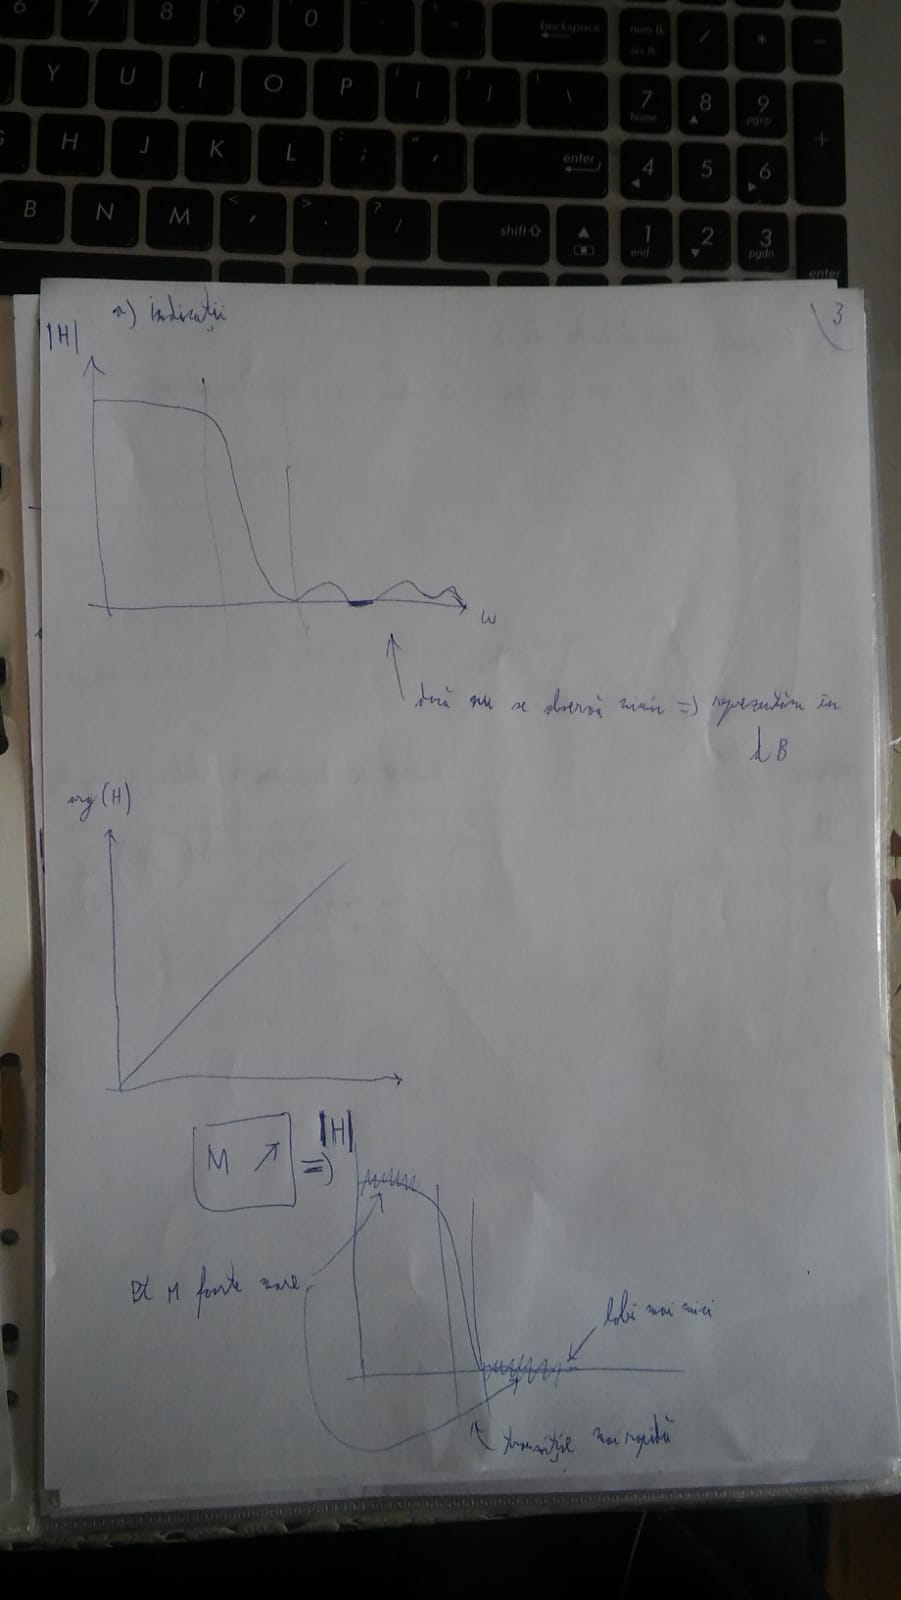 6 7 8 9 0 - = backspace num lk / * -
scr lk
Y U I O P [ ] \ 7 8 9
home pgup
+
H J K L ; " ' enter 4 5 6
B N M < , > . ? / shift 1 2 3
end pgdn
enter
a) indicații
3
|H|
ω
dacă nu se observă nimic => reprezentăm în
dB
arg(H)
M ↗ => |H|
pt M foarte mare
lobi mai mici
tranziție mai rapidă